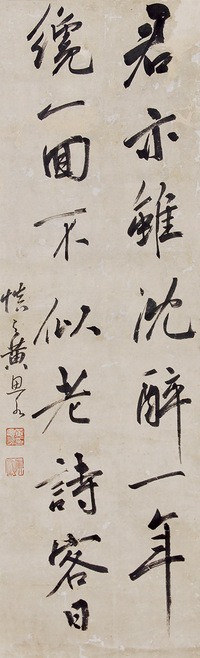 君亦雖沈醉一年
纔一回不似老詩客日
慎之黃思永